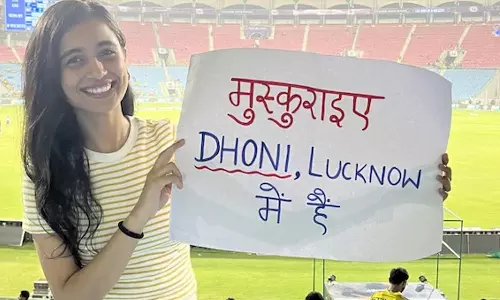 मुस्कुराइए
DHONI, LUCKNOW
में हैं